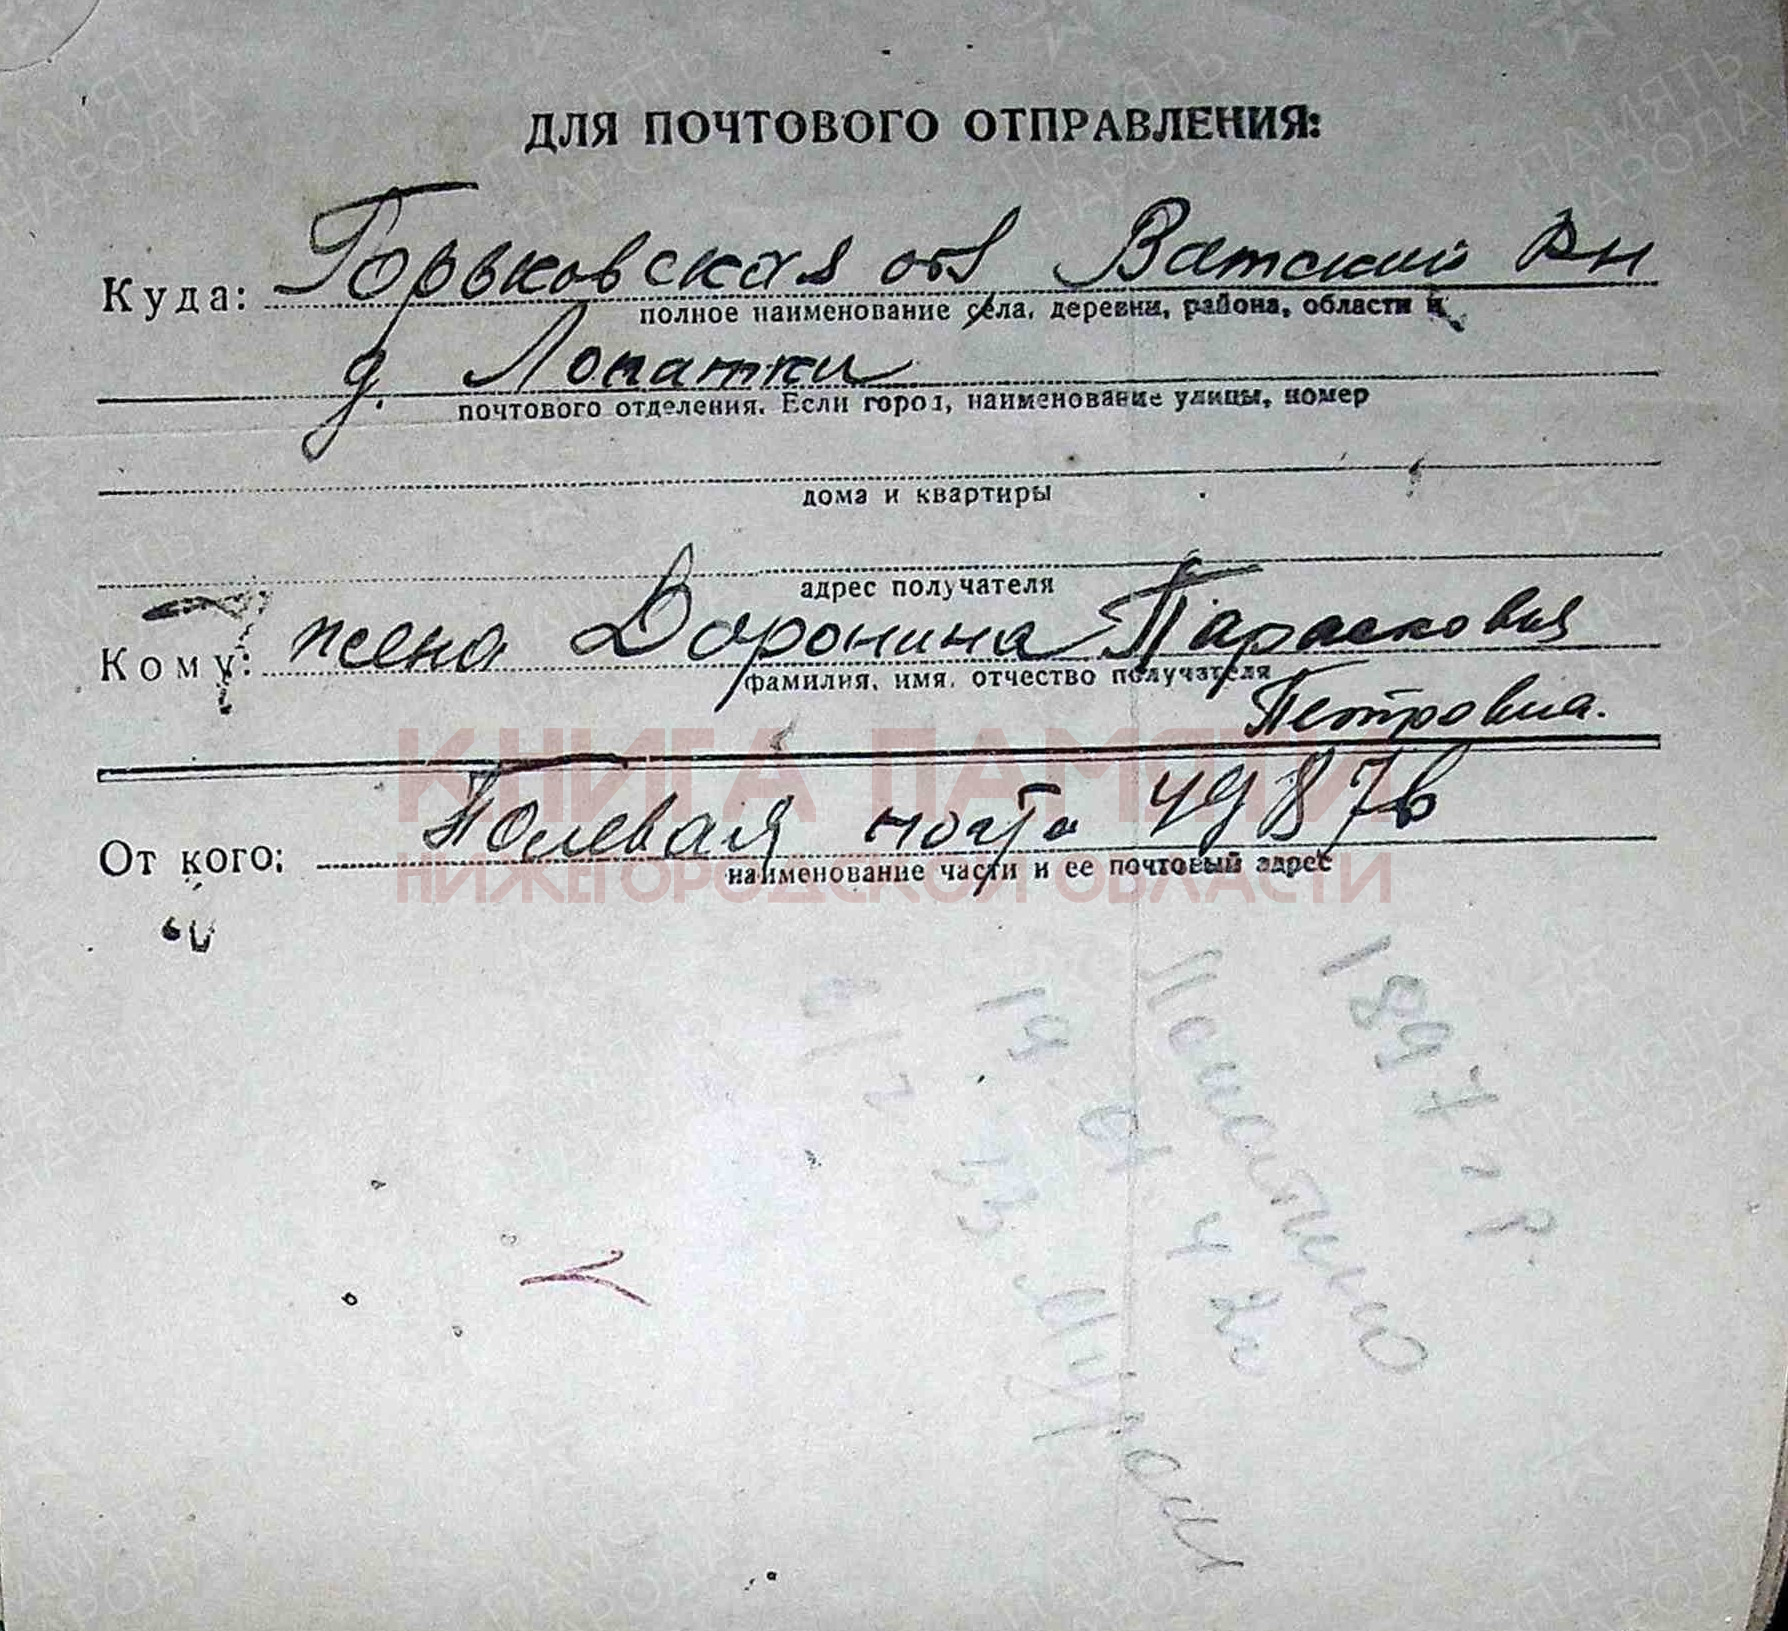 ДЛЯ ПОЧТОВОГО ОТПРАВЛЕНИЯ:
Куда: Горьковская обл Ватский Рн
полное наименование села, деревни, района, области и
д. Лопатки
почтового отделения. Если город, наименование улицы, номер
дома и квартиры
адрес получателя
Кому: жена Доронина Парасковия
фамилия, имя, отчество получателя
Петровна.
КНИГА ПАМЯТИ
Полевая почта 4987в
От кого:
наименование части и ее почтовый адрес
НИЖЕГОРОДСКОЙ ОБЛАСТИ
1897 г
ПАМЯТЬ
НАРОДА